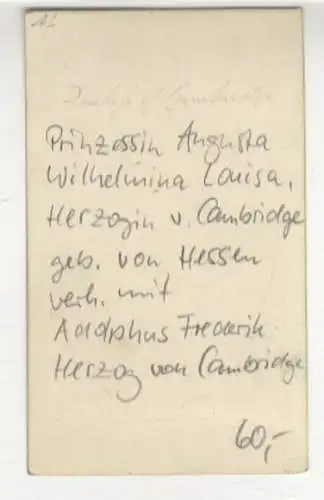 Prinzessin Augusta
Wilhelmina Louisa,
Herzogin v. Cambridge
geb. von Hessen
verh. mit
Adolphus Frederik
Herzog von Cambridge
60,-